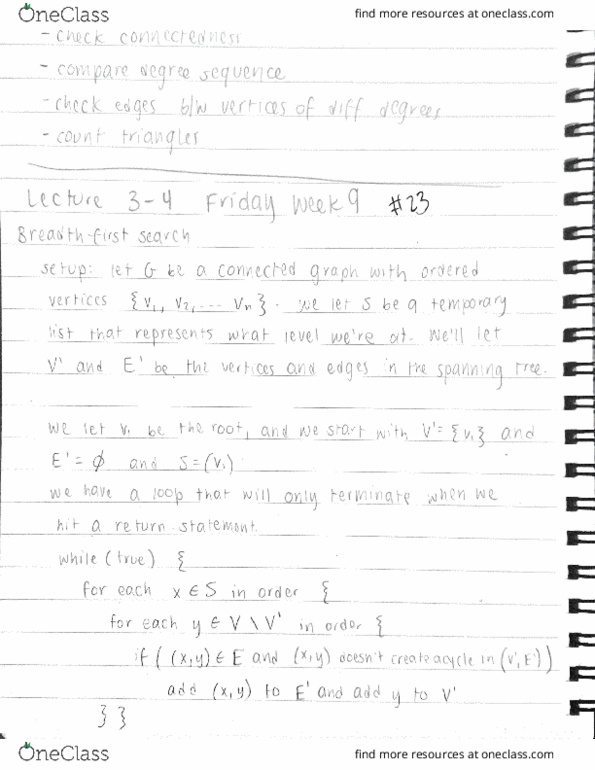 OneClass
find more resources at oneclass.com
- check connectedness
- compare degree sequence
- check edges b/w vertices of diff degrees
- count triangles
Lecture 3-4 Friday Week 9 #23
Breadth-first search
setup: let G be a connected graph with ordered
vertices {v₁, v₂, ... vₙ}. we let S be a temporary
list that represents what level we're at. We'll let
V' and E' be the vertices and edges in the spanning tree.
we let v₁ be the root, and we start with V'={v₁} and
E'= ∅ and S=(v₁)
we have a loop that will only terminate when we
hit a return statement.
while (true) {
for each x ∈ S in order {
for each y ∈ V \ V' in order {
if ( (x,y) ∈ E and (x,y) doesn't create a cycle in (V',E') )
add (x,y) to E' and add y to V'
} }
OneClass
find more resources at oneclass.com